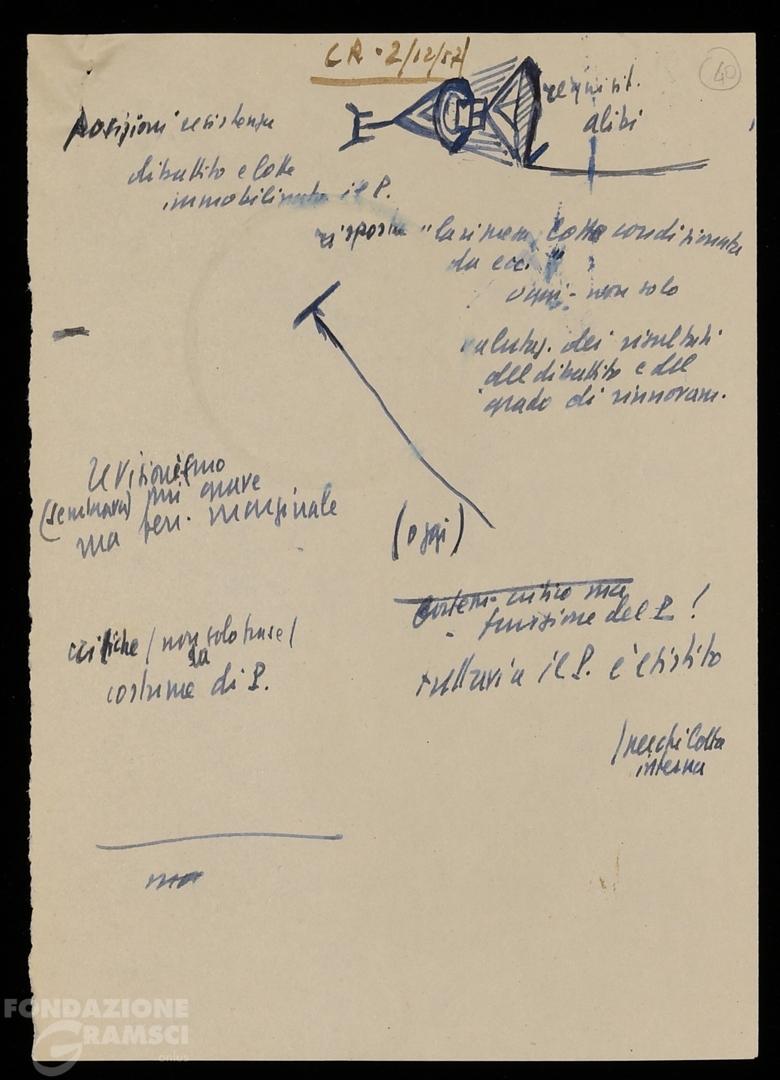 CR. 2/12/57
40
posizioni resistenza
alibi
dibattito e lotte
immobilizzato il P.
risposta "la sinora lotta condizionata
da ecc."
oggi - non solo
valutaz. dei risultati
del dibattito e del
grado di rinnovam.
Revisionismo
più grave
ma fen. marginale
(oggi)
critico ma
funzione del P!
critiche (non solo base)
da
costume di P.
tuttavia il P. è esistito
lotta
interna
ma
FONDAZIONE
GRAMSCI
onlus